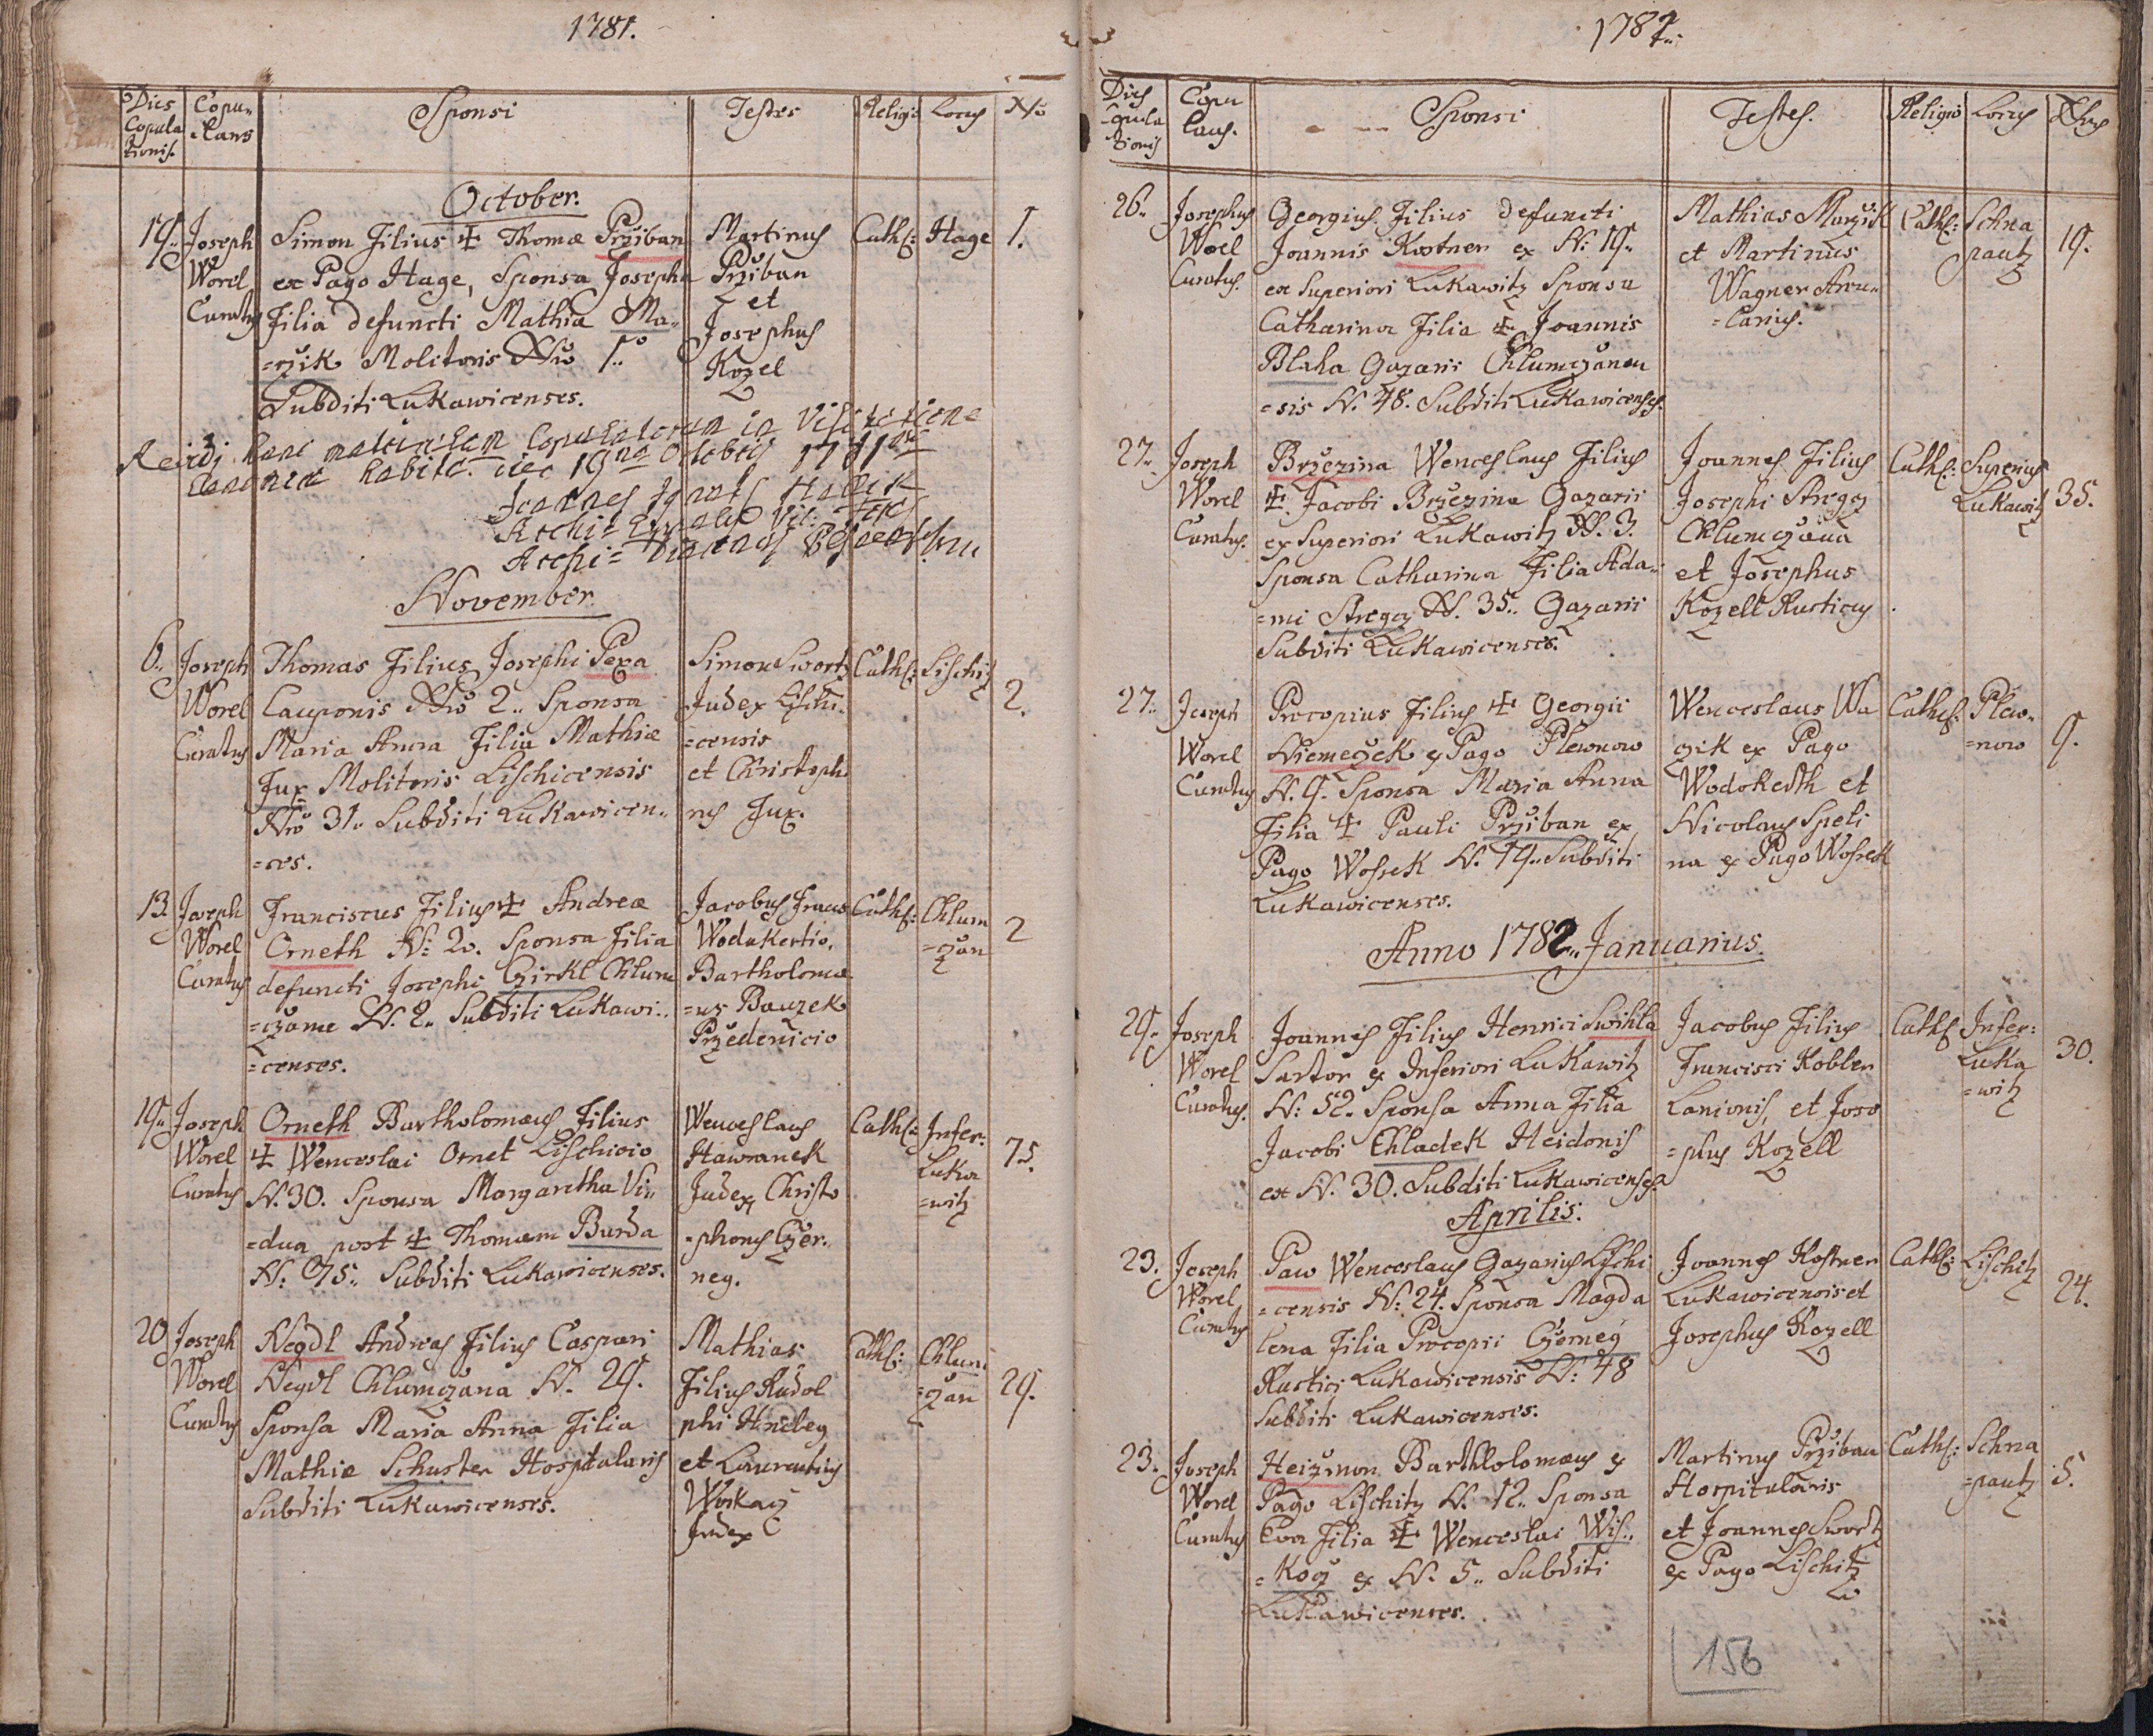 1781.
Dies Copulationis. Copulans Sponsi Testes Religio Locus Nro
October.
19. Joseph Worel Curatus
Simon Filius ✝ Thomæ Pržiban
ex Pago Hage, Sponsa Josepha
Filia defuncti Mathiæ Ma-
=rzik Molitoris Nro 1mo
Subditi Lukawicenses.
Martinus
Pržiban
et
Josephus
Kozel
Cath: Hage 1.
hanc matriculam Copulatorum in Visitatione
Canonica habita. die 19na Octobris 1781
November.
6. Joseph Worel Curatus
Thomas Filius Josephi Pexa
Cauponis Nro 2. Sponsa
Maria Anna Filia Mathiæ
Jux Molitoris Lischicensis
Nro 31. Subditi Lukawicen-
=ses.
Simon Swortz
Judex Lischi-
=censis
et Christoph
rus Jux.
Cath: Lischitz 2.
13. Joseph Worel Curatus
Franciscus Filius ✝ Andreæ
Orneth N: 20. Sponsa Filia
defuncti Josephi Czirkl Chlum
=czame N. 2. Subditi Lukawi-
=censes.
Jacobus
Wodokertio,
Bartholomæ
=us Bauzek
Pržedenicio
Cath: Chlum
=czan 2
19. Joseph Worel Curatus
Orneth Bartholomæus Filius
✝ Wenceslai Ornet Lischicio
N. 30. Sponsa Margaretha Vi-
=dua post ✝ Thomam Burda
N: 75. Subditi Lukawicenses.
Wenceslaus
Hawranek
Judex Christo
=phorus Czer-
neg.
Cath: Infer:
Luka
=witz 75.
20 Joseph Worel Curatus
Negdl Andreas Filius Caspari
Negdl Chlumczana N. 29.
Sponsa Maria Anna Filia
Mathiæ Schuster Hospitalaris
Subditi Lukawicenses.
Mathias
Filius Rudol
phi
et Laurentius
Judex
Cath: Chlum
=czan 29.
1782.
Dies Copulationis Copulans. Sponsi Testes. Religio Locus Nrus
26. Josephus Worel Curatus.
Georgius Filius defuncti
Joannis Kostner ex N: 19.
ex Superiori Lukawitz Sponsa
Catharina Filia ✝ Joannis
Blaha Gazarii Chlumczanen
=sis N. 48. Subditi Lukawicenses.
Mathias Marzik
et Martinus
Wagner Arcu-
=larius.
Cath: Schna
pautz 19.
27. Joseph Worel Curatus.
Brzezina Wenceslaus Filius
✝ Jacobi Brzezina Gazarii
ex Superiori Lukawitz N. 3.
Sponsa Catharina Filia Ada-
=mi Stregcz N. 35. Gazarii
Subditi Lukawicenses.
Joannes Filius
Josephi Stregcz
Chlumczana
et Josephus
Kozell Rusticus
Cath: Superius
Lukawitz 35.
27. Joseph Worel Curatus
Procopius Filius ✝ Georgii
Niemeczek ex Pago Plewnow
N. 9. Sponsa Maria Anna
Filia ✝ Pauli Pržiban ex
Pago Wossek N. 19. Subditi
Lukawicenses.
Wenceslaus Wa
czik ex Pago
Wodokerth et
Nicolaus Speli
na ex Pago Wossek
Cath: Plew-
=now 9.
Anno 1782. Januarius.
29. Joseph Worel Curatus.
Joannes Filius Henrici Swihla
Sartor ex Inferiori Lukawitz
N: 52. Sponsa Anna Filia
Jacobi Chladek Heidonis
ex N. 30. Subditi Lukawicenses.
Jacobus Filius
Francisci Kobler
Lanionis, et Jose
=phus Kozell
Cath: Infer:
Luka
=witz 30.
Aprilis.
23. Joseph Worel Curatus
Paw Wenceslaus Gazarius Lischi
=censis N: 24. Sponsa Magda
lena Filia Procopii Czerneg
Rustici Lukawicensis N: 48
Subditi Lukawicenses.
Joannes Kostner
Lukawicensis et
Josephus Kozell
Cath: Lischitz 24.
23. Joseph Worel Curatus
Heizmon Barthlolomæus ex
Pago Lischitz N. 12. Sponsa
Eva Filia ✝ Wenceslai Wis-
=Kocz ex N. 5. Subditi
Lukawicenses.
Martinus Pržiban
Hospitalaris
et Joannes Swortz
ex Pago Lischitz
Cath: Schna
=pautz 5.
156